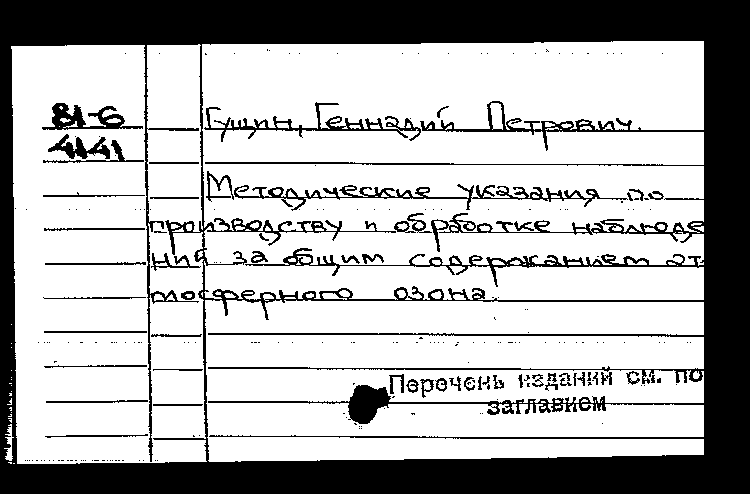 81-6
4141
Гущин, Геннадий Петрович.
Методические указания по
производству и обработке наблюде
ний за общим содержанием ат
мосферного озона.
Перечень изданий см. по
заглавием